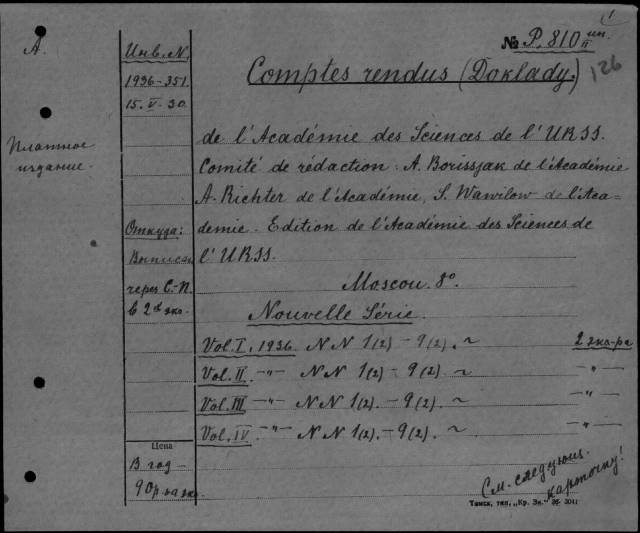 1
№ P. 810 ин.
II
126
A.
Инв. N.
1936-351
15. V. 30.
Платное
издание.
Откуда:
Выписан
через С.-П.
в 2х экз.
Цена
В год —
90 р. за экз.
Comptes rendus (Doklady.)
de l'Académie des Sciences de l'URSS.
Comité de rédaction: A. Borissjak de l'Académie
A. Richter de l'Académie, S. Wawilow de l'Aca=
demie. Edition de l'Académie des Sciences de
l'URSS.
Moscou. 8°.
Nouvelle Série.
Vol. I, 1936. NN 1(2) – 9(2). ~ 2 экз-ра
Vol. II. –"– NN 1(2) – 9(2). ~ –"–
Vol. III –"– NN 1(2). – 9(2). ~ –"–
Vol. IV. –"– NN 1(2). – 9(2). ~ –"–
См. следующ.
карточку!
Томск, тип. „Кр. Зн." 3011